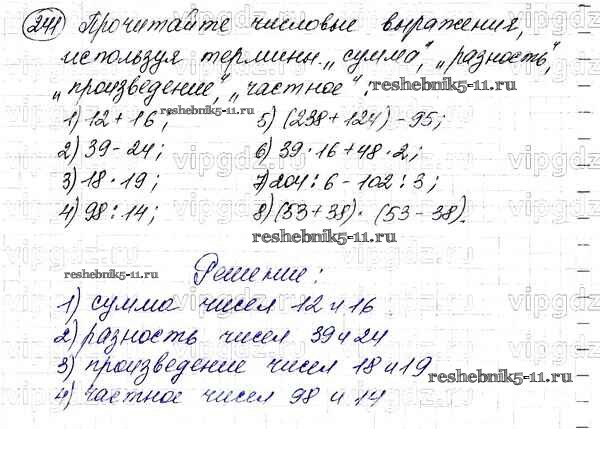 241 Прочитайте числовые выражения,
используя термины „сумма“, „разность“,
„произведение“, „частное“.
reshebnik5-11.ru
reshebnik5-11.ru
1) 12 + 16; 5) (238 + 124) - 95;
2) 39 - 24; 6) 39 · 16 + 48 · 2;
3) 18 · 19; 7) 204 : 6 - 102 : 3;
4) 98 : 14; 8) (53 + 38) · (53 - 38).
reshebnik5-11.ru
reshebnik5-11.ru
Решение:
1) сумма чисел 12 и 16
2) разность чисел 39 и 24
3) произведение чисел 18 и 19
reshebnik5-11.ru
4) частное чисел 98 и 14